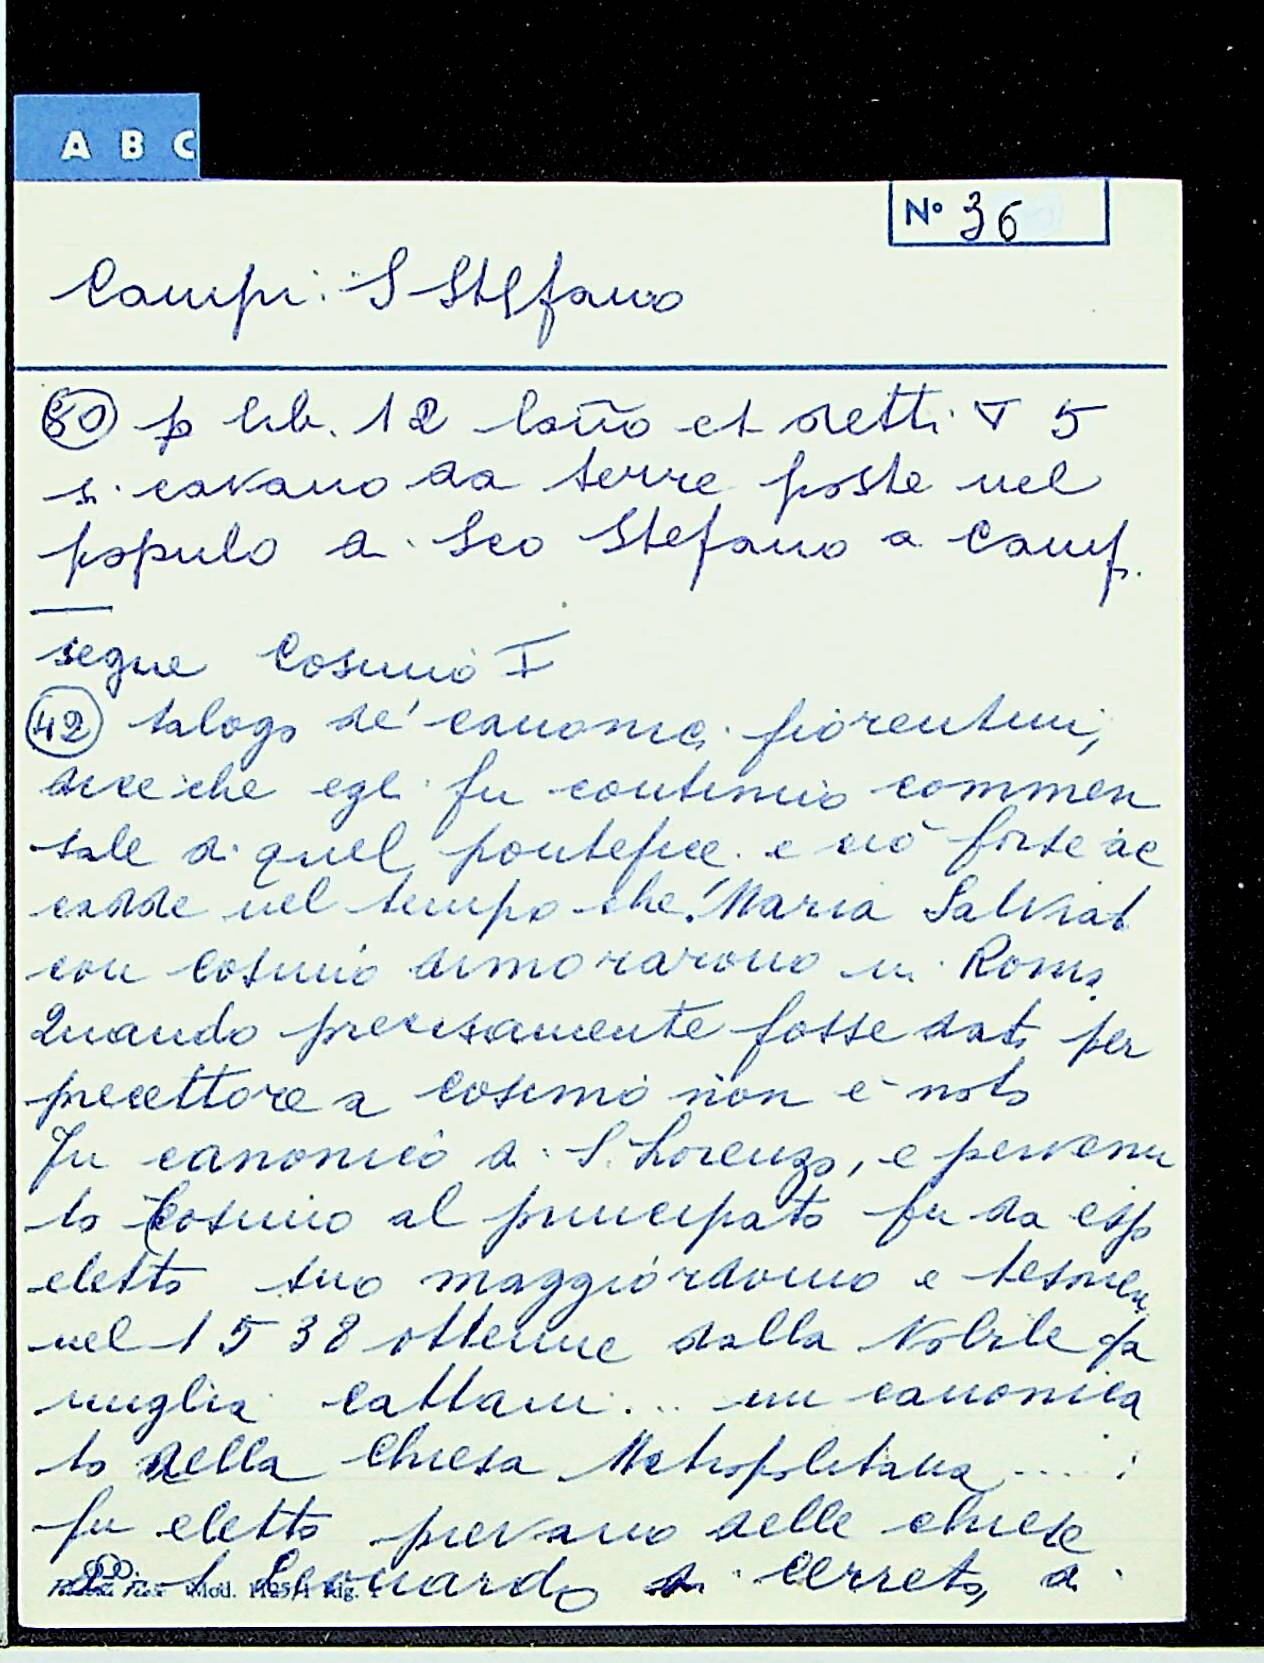 A B C
N° 36
Campi: S Stefano
80 p lib. 12 l'año et detti ∇ 5
si cavano da terre poste nel
populo di Sco Stefano a Camp.
segue Cosimo I
42 talogo de' canonici fiorentini,
dice che egli fu continuo commen
sale di quel pontefice e ciò forse ac
cadde nel tempo che Maria Salviati
con Cosimo dimorarono in Roma
Quando precisamente fosse dato per
precettore a Cosimo non è noto
Fu canonico di S. Lorenzo, e pervenu
to Cosimo al principato fu da esso
eletto suo maggiordomo e tesorier
nel 1538 ottenne dalla Nobile fa
miglia Cattani... un canonica
to della Chiesa Metropolitana .... ;
fu eletto pievano delle chiese
di S Leonardo di Cerreto, di
Mod. Rig. 1